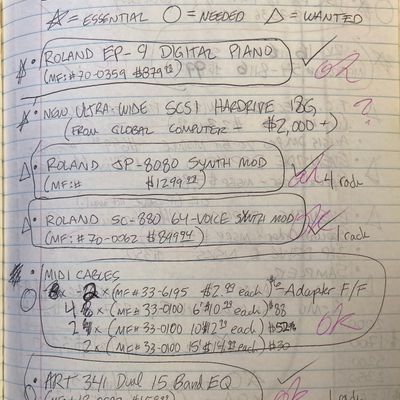 ☆ = ESSENTIAL ○ = NEEDED △ = WANTED
☆ • ROLAND EP-9 DIGITAL PIANO ✓
(MF: #70-0359 $879⁹⁹) OK
☆ • NEW ULTRA-WIDE SCSI HARDRIVE 18G, ?
(FROM GLOBAL COMPUTER - $2,000+)
△ • ROLAND JP-8080 SYNTH MOD ✓
(MF:# $1299.⁹⁹) 4 rack
△ • ROLAND SC-880 64-VOICE SYNTH MOD ✓ OK
(MF: #70-0062 $849⁹⁴) 1 rack
• MIDI CABLES
○ 2 x (MF#33-6195 $2.⁹⁹ each) $6 - Adapter F/F
8 x (MF#33-0100 6' $10.⁹⁹ each) $88
x (MF#33-0100 10' $12.⁹⁹ each) OK
2 x (MF#33-0100 15' $14.⁹⁹ each) $30
○ • ART 341 Dual 15 Band EQ